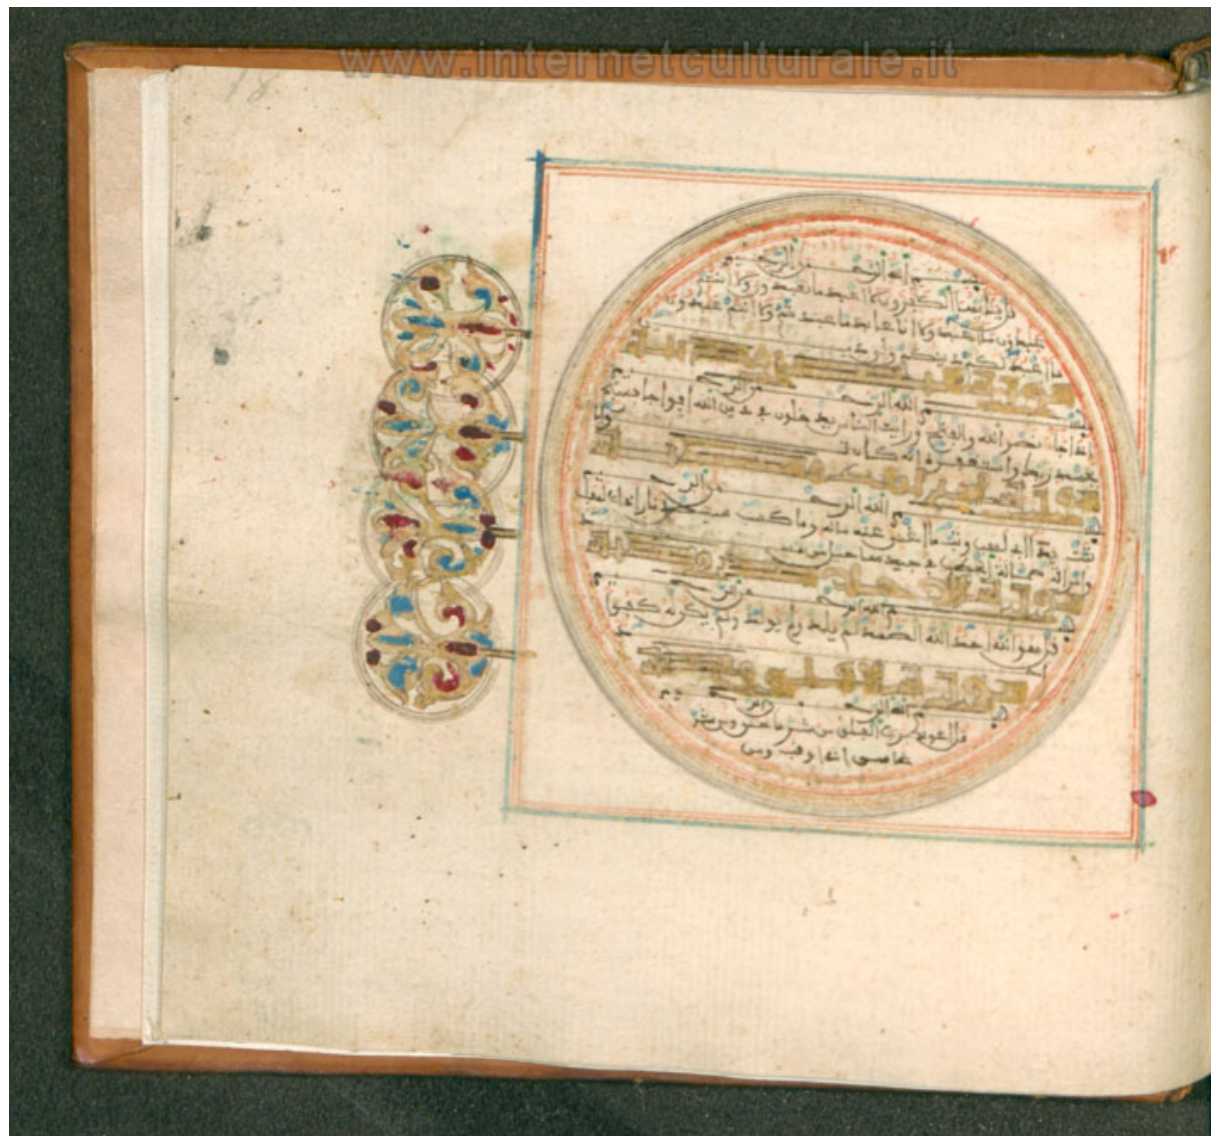 www.internetculturale.it
18
بسم الله الرحمن الرحيم
قل يا أيها الكفرون لا أعبد ما تعبدون ولا أنتم
عبدون ما أعبد ولا أنا عابد ما عبدتم ولا أنتم عبدون
ما أعبد لكم دينكم ولي دين
سورة
بسم الله الرحمن الرحيم
إذا جاء نصر الله والفتح ورأيت الناس يدخلون في دين الله أفواجا فسبح
بحمد ربك واستغفره إنه كان توابا
سورة
بسم الله الرحمن الرحيم
تبت يدا أبي لهب وتب ما أغنى عنه ماله وما كسب سيصلى نارا ذات لهب
وامرأته حمالة الحطب في جيدها حبل من مسد
سورة الإخلاص
بسم الله الرحمن الرحيم
قل هو الله أحد الله الصمد لم يلد ولم يولد ولم يكن له كفؤا
أحد
سورة الفلق
بسم الله الرحمن الرحيم
قل أعوذ برب الفلق من شر ما خلق ومن شر
غاسق إذا وقب ومن